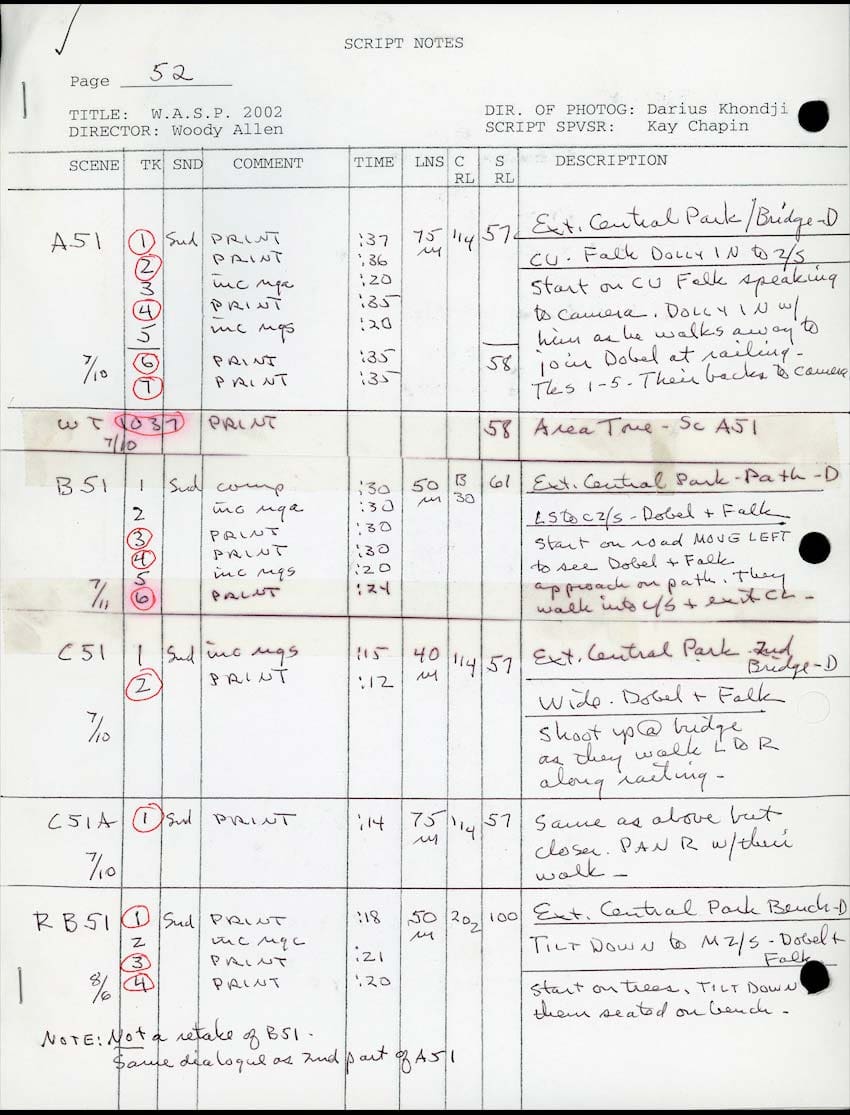 SCRIPT NOTES
Page 52
TITLE: W.A.S.P. 2002 DIR. OF PHOTOG: Darius Khondji
DIRECTOR: Woody Allen SCRIPT SPVSR: Kay Chapin
SCENE TK SND COMMENT TIME LNS C RL S RL DESCRIPTION
A51 1 Snd PRINT :37 75 m 1/14 57 Ext. Central Park/Bridge-D
2 PRINT :36 CU. Falk DOLLY IN to 2/S
3 inc nga :20 Start on CU Falk speaking
4 PRINT :35 to camera. DOLLY IN w/
5 inc ngs :20 him as he walks away to
7/10 6 PRINT :35 58 join Dobel at railing -
7 PRINT :35 Tks 1-5 - Their backs to camera
WT 1037 PRINT 58 Area Tone - Sc A51
7/10
B51 1 Snd comp :30 50 m B 30 61 Ext. Central Park - Path - D
2 inc nga :30 LS to C2/S - Dobel + Falk
3 PRINT :30 Start on road MOVE LEFT
4 PRINT :30 to see Dobel + Falk
5 inc ngs :20 approach on path. They
7/11 6 PRINT :24 walk into C/S + exit CL -
C51 1 Snd inc ngs :15 40 m 1/14 57 Ext. Central Park - 2nd
Bridge-D
2 PRINT :12 Wide. Dobel + Falk
7/10 Shoot up @ bridge
as they walk L to R
along railing -
C51A 1 Snd PRINT :14 75 m 1/14 57 Same as above but
7/10 closer. PAN R w/their
walk -
RB51 1 Snd PRINT :18 50 m 202 100 Ext. Central Park Bench-D
2 inc ngc TILT DOWN to M2/S - Dobel +
Falk
3 PRINT :21
8/6 4 PRINT :20 Start on trees, TILT DOWN
them seated on bench -
NOTE: Not a retake of B51.
Same dialogue as 2nd part of A51